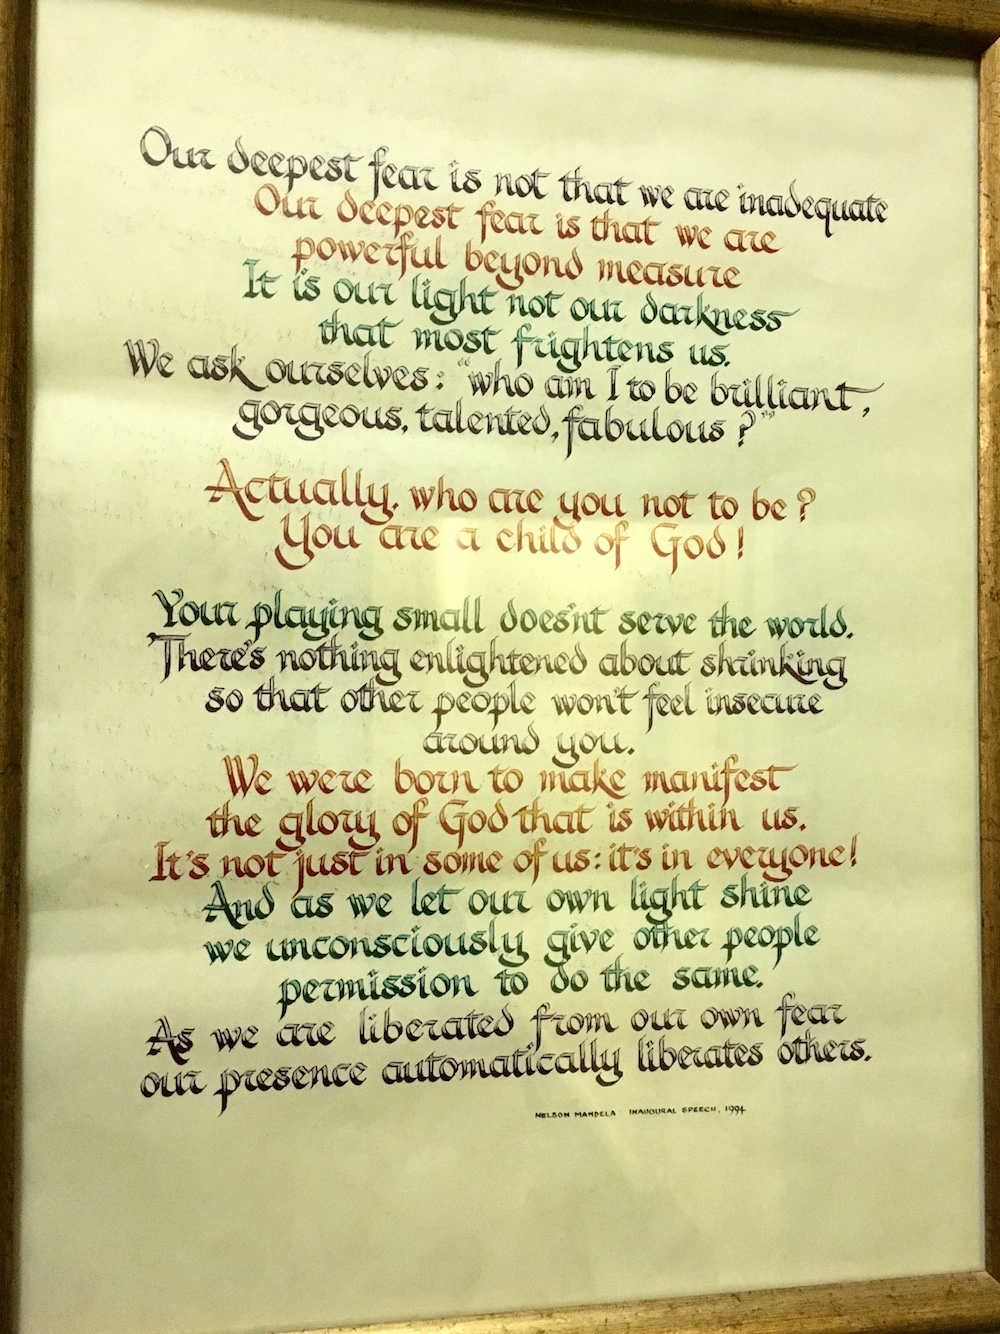 Our deepest fear is not that we are inadequate
Our deepest fear is that we are
powerful beyond measure
It is our light not our darkness
that most frightens us.
We ask ourselves: "who am I to be brilliant,
gorgeous, talented, fabulous?"
Actually, who are you not to be?
You are a child of God!
Your playing small does'nt serve the world.
There's nothing enlightened about shrinking
so that other people won't feel insecure
around you.
We were born to make manifest
the glory of God that is within us.
It's not just in some of us: it's in everyone!
And as we let our own light shine
we unconsciously give other people
permission to do the same.
As we are liberated from our own fear
our presence automatically liberates others.
NELSON MANDELA INAUGURAL SPEECH, 1994